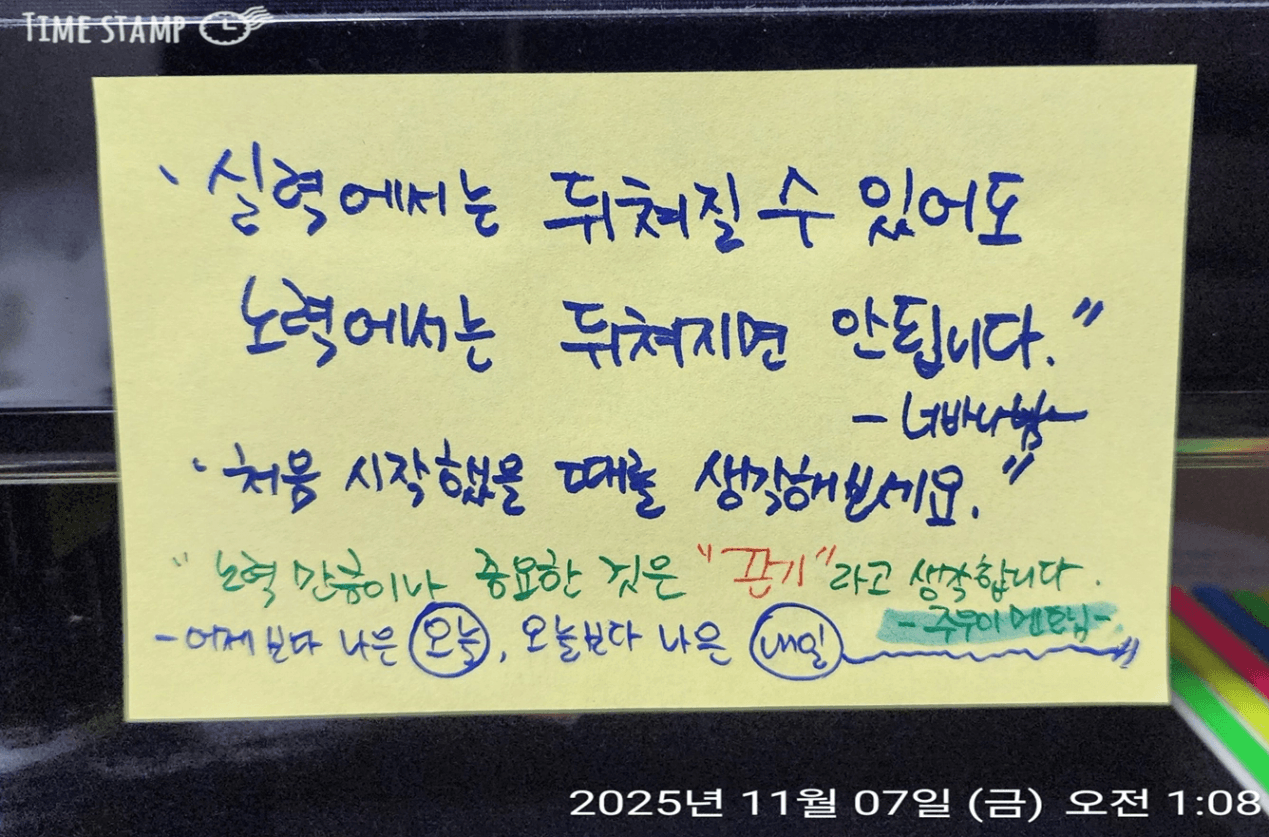 TIME STAMP
` 실력에서는 뒤쳐질 수 있어도
노력에서는 뒤쳐지면 안됩니다."
- 너바나님 -
` 처음 시작했을 때를 생각해보세요."
" 노력 만큼이나 중요한 것은 "끈기"라고 생각합니다.
- 주우이 멘토님 -
- 어제보다 나은 오늘, 오늘보다 나은 내일
2025년 11월 07일 (금) 오전 1:08